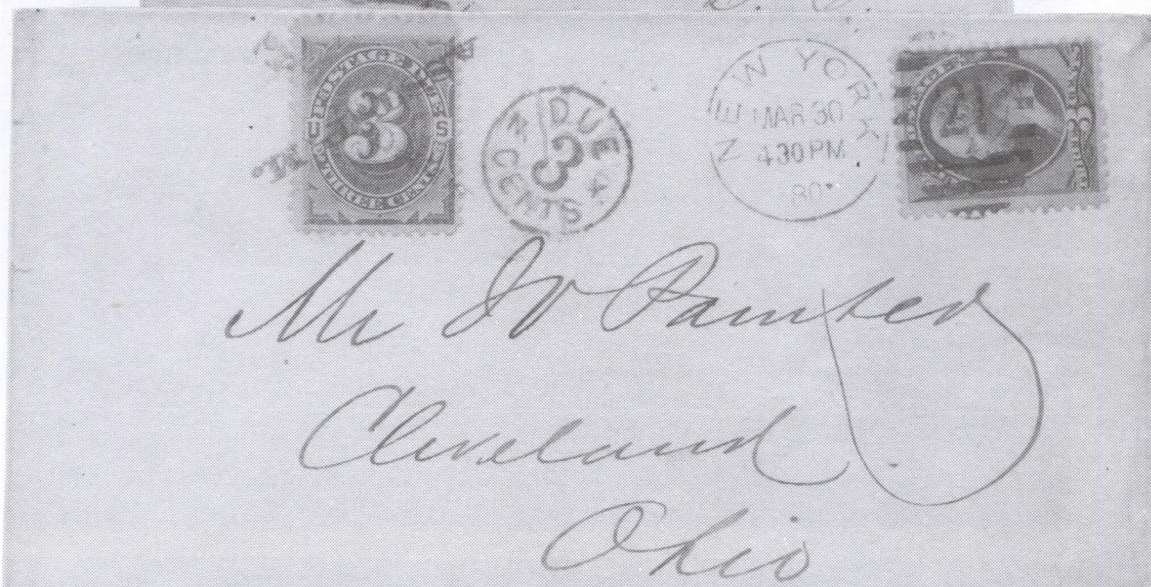 POSTAGE DUE
U 3 S
THREE CENTS
DUE
3
CENTS
NEW YORK
MAR 30
430PM
80
POSTAGE
Mr JV Painter
Cleveland
Ohio